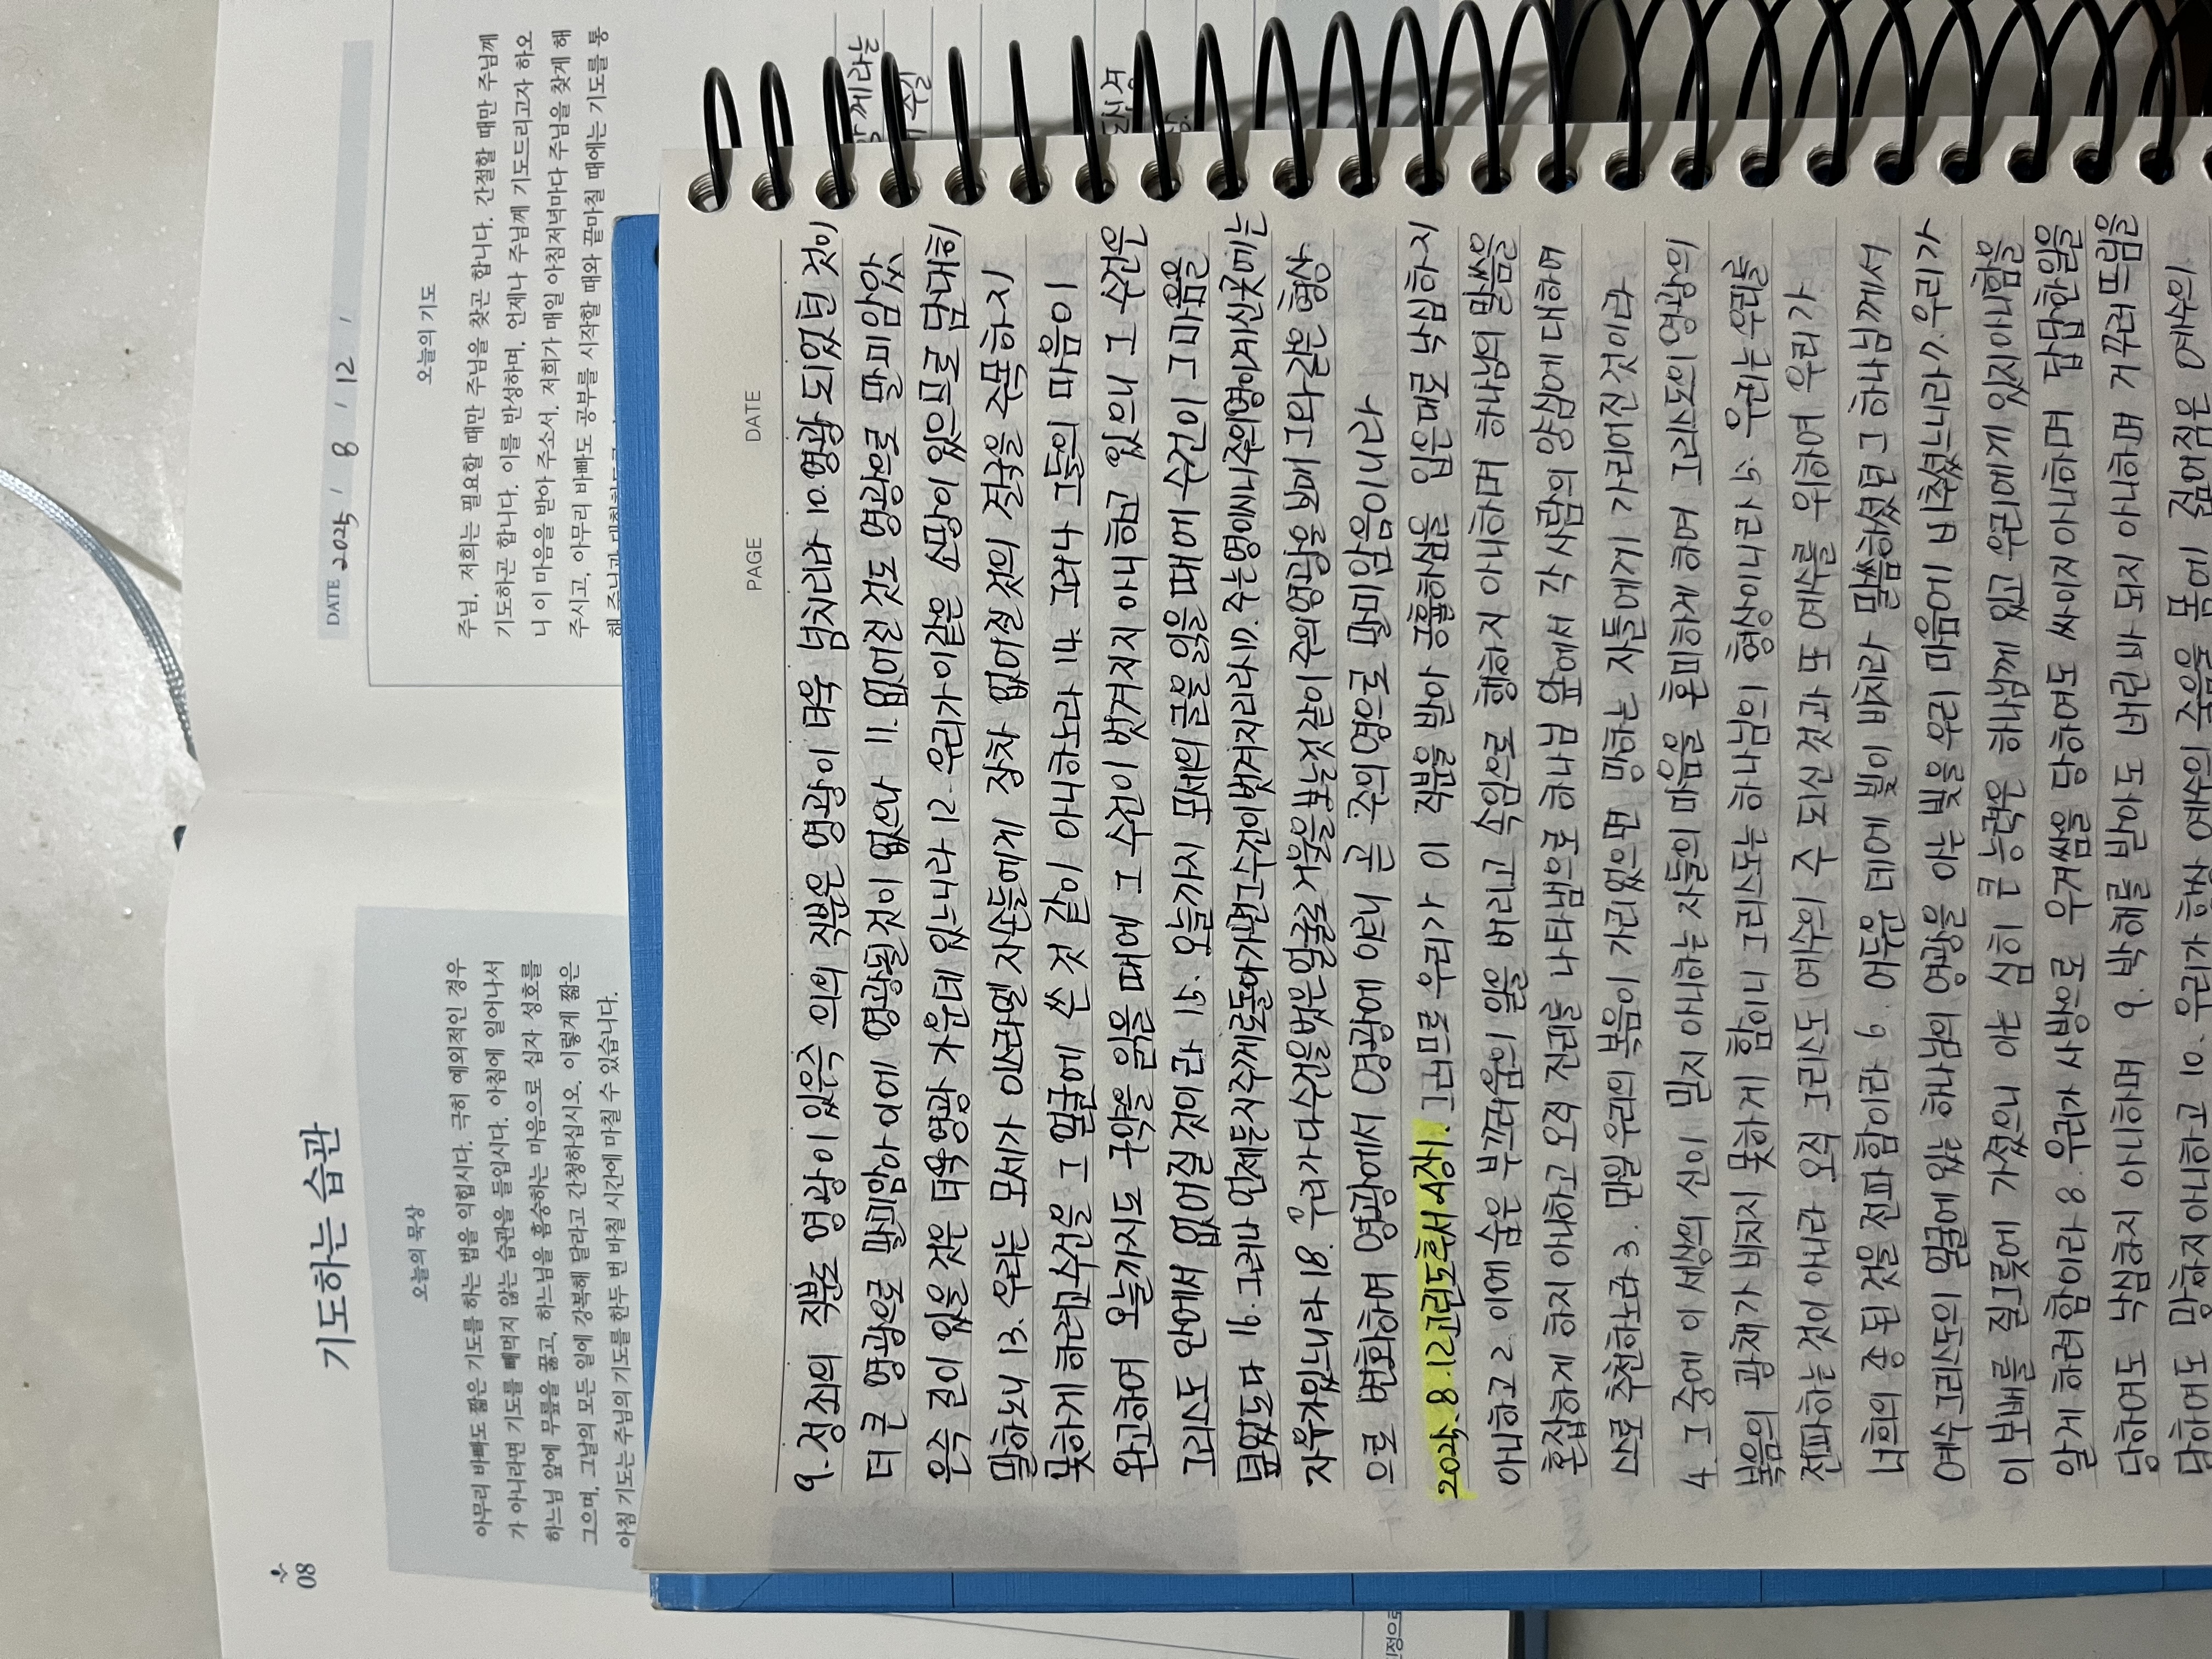 08
기도하는 습관
오늘의 묵상
아무리 바빠도 짧은 기도를 하는 법을 익힙시다. 극히 예외적인 경우
가 아니라면 기도를 빼먹지 않는 습관을 들입시다. 아침에 일어나서
하느님 앞에 무릎을 꿇고, 하느님을 흠숭하는 마음으로 십자 성호를
그으며, 그날의 모든 일에 강복해 달라고 간청하십시오. 이렇게 짧은
아침 기도는 주님의 기도를 한두 번 바칠 시간에 마칠 수 있습니다.
DATE 2025 / 8 / 12 /
오늘의 기도
주님, 저희는 필요할 때만 주님을 찾곤 합니다. 간절할 때만 주님께
기도하곤 합니다. 이를 반성하며, 언제나 주님께 기도드리고자 하오
니 이 마음을 받아 주소서. 저희가 매일 아침저녁마다 주님을 찾게 해
주시고, 아무리 바빠도 공부를 시작할 때와 끝마칠 때에는 기도를 통
PAGE DATE
9. 정죄의 직분도 영광이 있은즉 의의 직분은 영광이 더욱 넘치리라 10. 영광 되었던 것이
더 큰 영광으로 말미암아 이에 영광될 것이 없으나 11. 없어진 것도 영광으로 말미암았
은즉 길이 있을 것은 더욱 영광 가운데 있느니라 12. 우리가 이같은 소망이 있으므로 담대히
말하노니 13. 우리는 모세가 이스라엘 자손들에게 장차 없어질 것의 결국을 주목하지
못하게 하려고 수건을 그 얼굴에 쓴 것 같이 아니하노라 14. 그러나 그들의 마음이
완고하여 오늘까지도 구약을 읽을 때에 그 수건이 벗겨지지 아니하고 있으니 그 수건은
그리스도 안에서 없어질 것이라 15. 오늘까지 모세의 글을 읽을 때에 수건이 그 마음을
덮었도다 16. 그러나 언제든지 주께로 돌아가면 그 수건이 벗겨지리라 17. 주는 영이시니 주의 영이 계신 곳에는
자유가 있느니라 18. 우리가 다 수건을 벗은 얼굴로 거울을 보는 것 같이 주의 영광을 보매 그와 같은 형상
으로 변화하여 영광에서 영광에 이르니 곧 주의 영으로 말미암음이니라
2025. 8. 12 고린도후서 4장 1. 그러므로 우리가 이 직분을 받아 긍휼하심을 입은대로 낙심하지
아니하고 2. 이에 숨은 부끄러움의 일을 버리고 속임으로 행하지 아니하며 하나님의 말씀을
혼잡하게 하지 아니하고 오직 진리를 나타냄으로 하나님 앞에서 각 사람의 양심에 대하여
스스로 추천하노라 3. 만일 우리의 복음이 가리었으면 망하는 자들에게 가리어진 것이라
4. 그 중에 이 세상의 신이 믿지 아니하는 자들의 마음을 혼미하게 하여 그리스도의 영광의
복음의 광채가 비치지 못하게 함이니 그리스도는 하나님의 형상이니라 5. 우리는 우리를
전파하는 것이 아니라 오직 그리스도 예수의 주 되신 것과 또 예수를 위하여 우리가
너희의 종 된 것을 전파함이라 6. 어두운 데에 빛이 비치라 말씀하셨던 그 하나님께서
예수 그리스도의 얼굴에 있는 하나님의 영광을 아는 빛을 우리 마음에 비추셨느니라 7. 우리가
이 보배를 질그릇에 가졌으니 이는 심히 큰 능력은 하나님께 있고 우리에게 있지 아니함을
알게 하려 함이라 8. 우리가 사방으로 우겨쌈을 당하여도 싸이지 아니하며 답답한 일을
당하여도 낙심하지 아니하며 9. 박해를 받아도 버린 바 되지 아니하며 거꾸러뜨림을
당하여도 망하지 아니하고 10. 우리가 항상 예수의 죽음을 몸에 짊어짐은 예수의